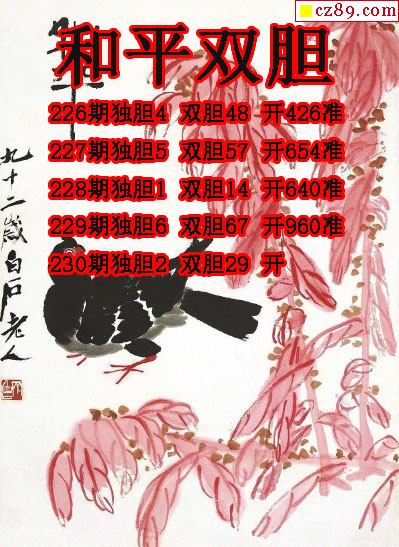 cz89.com
和平双胆
226期独胆4 双胆48 开426准
227期独胆5 双胆57 开654准
228期独胆1 双胆14 开640准
229期独胆6 双胆67 开960准
230期独胆2 双胆29 开
九十二岁白石老人